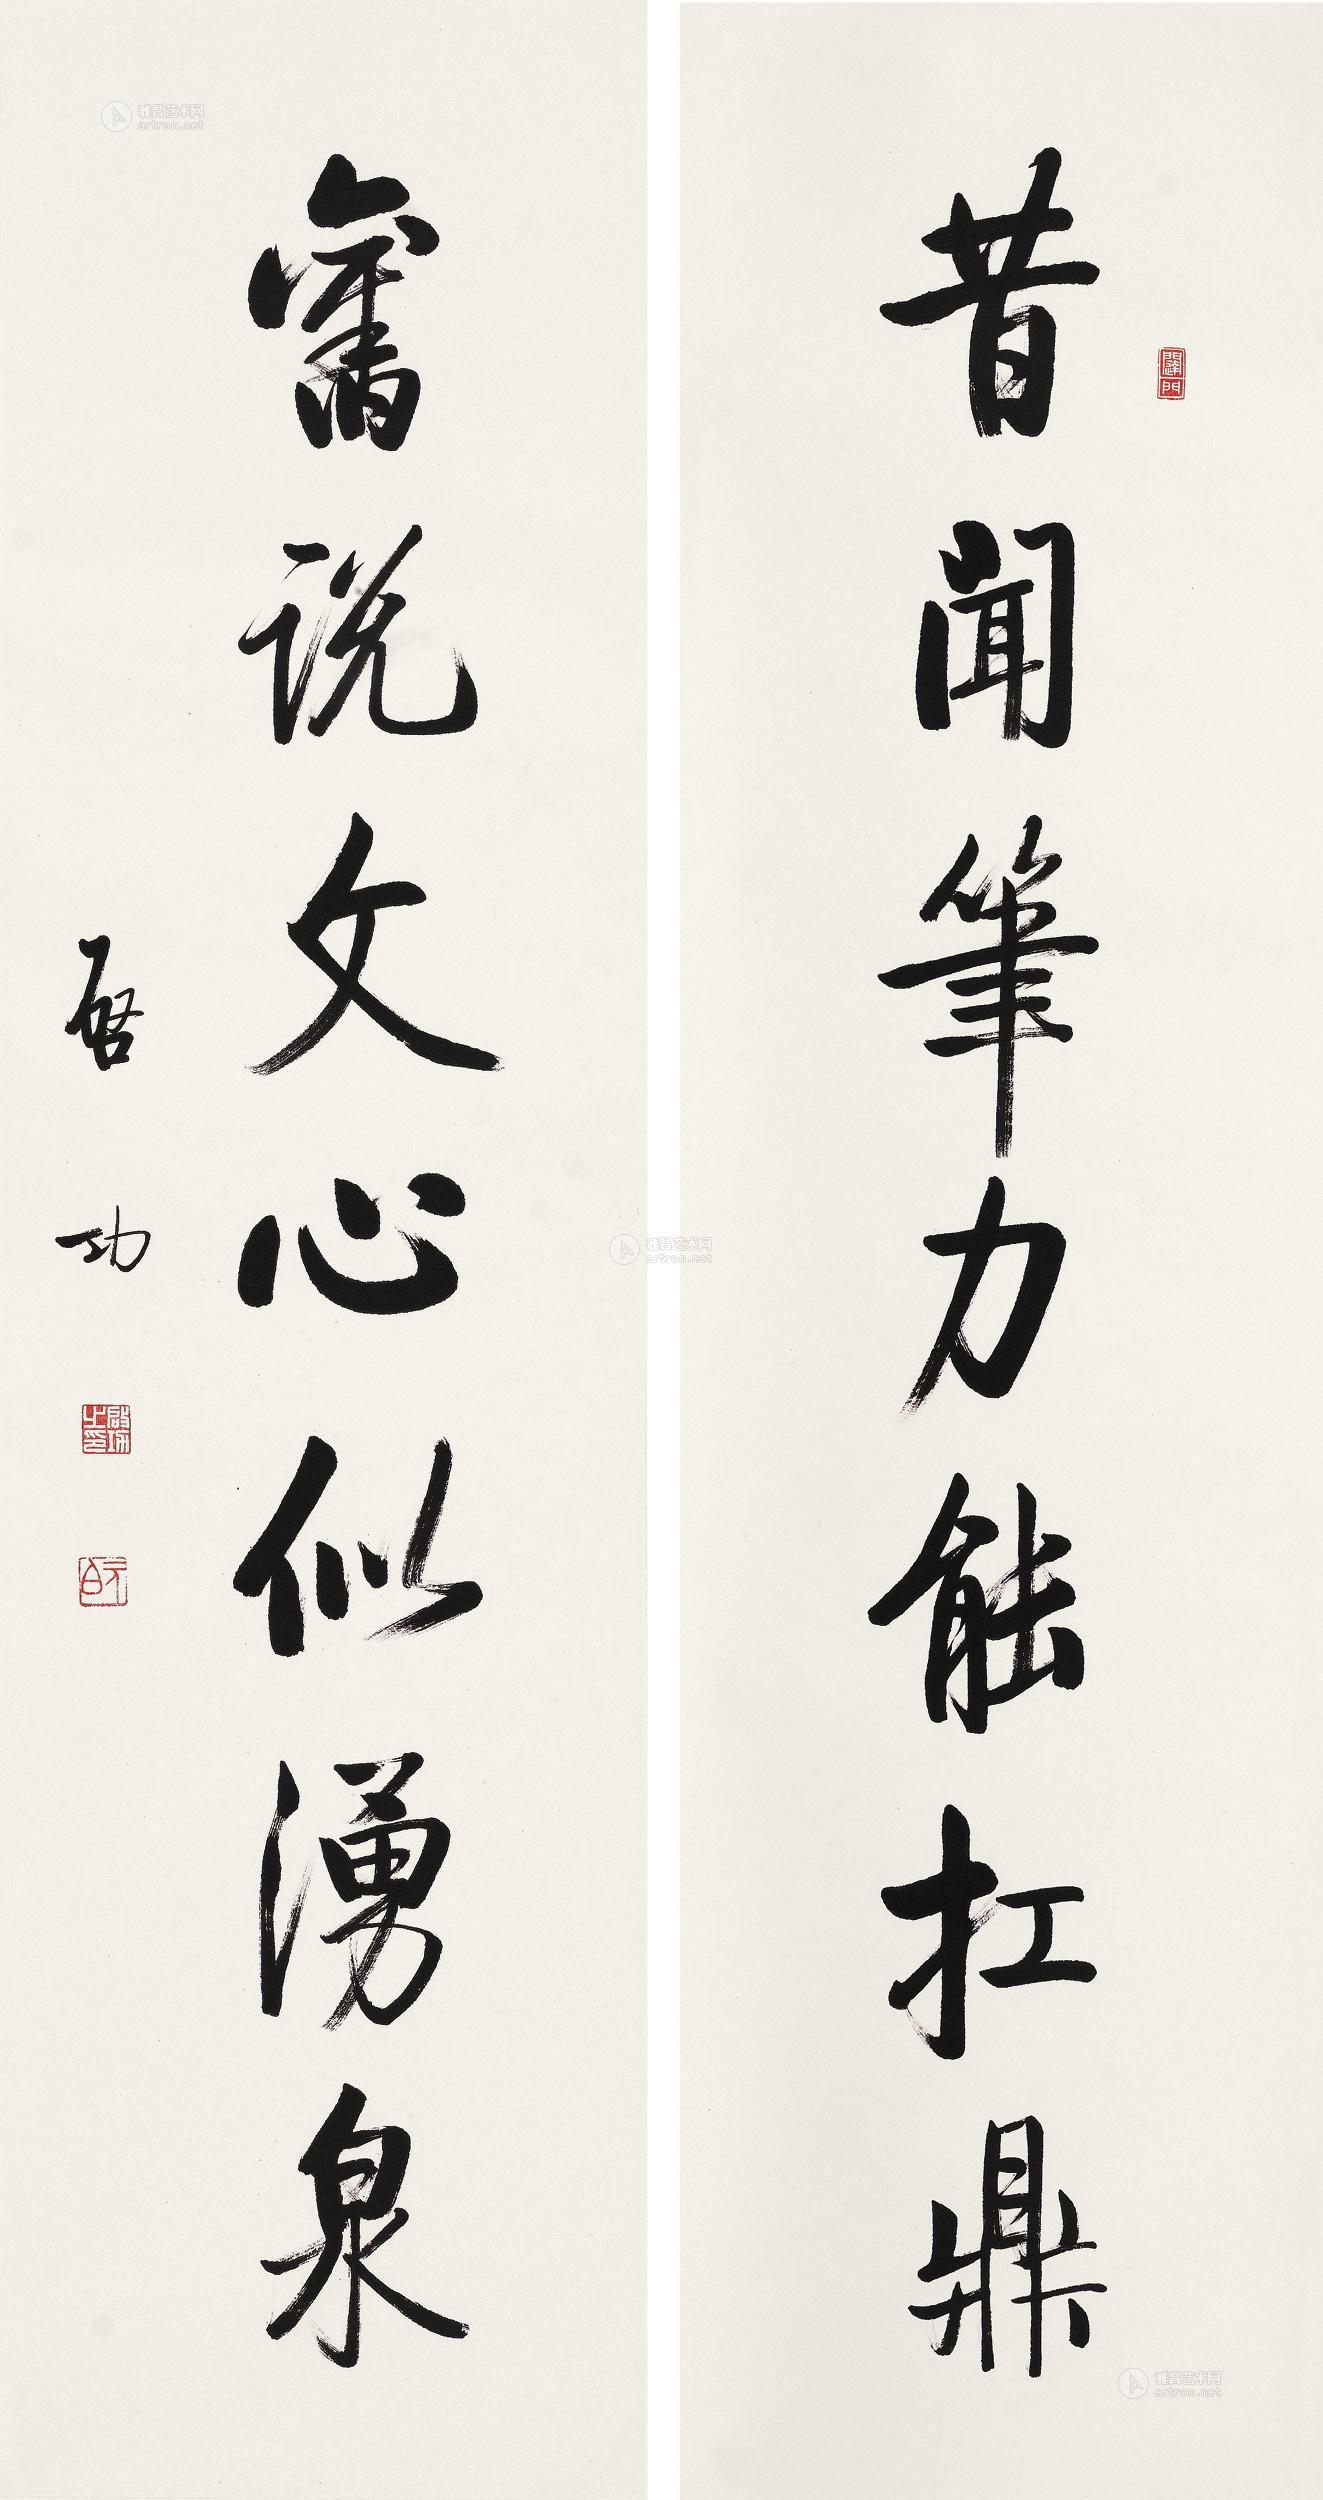 昔聞筆力能扛鼎
舊説文心似湧泉
啓功
啓功之印
元白
雅昌艺术网
artron.net
雅昌艺术网
artron.net
雅昌艺术网
artron.net